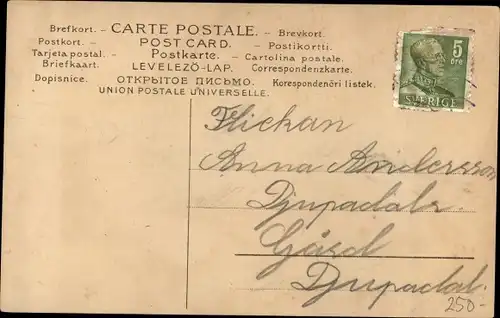 Brefkort. - CARTE POSTALE. - Brevkort.
Postkort. - POST CARD. - Postikortti.
Tarjeta postal. - Postkarte. - Cartolina postale.
Briefkaart. LEVELEZÖ-LAP. Correspondenzkarte.
Dopisnice. ОТКРЫТОЕ ПИСЬМО. Korespondenčni listek.
UNION POSTALE UNIVERSELLE.
5
öre
SVERIGE
Flickan
Anna Andersson
Djupadals
Gård
Djupadal.
250-